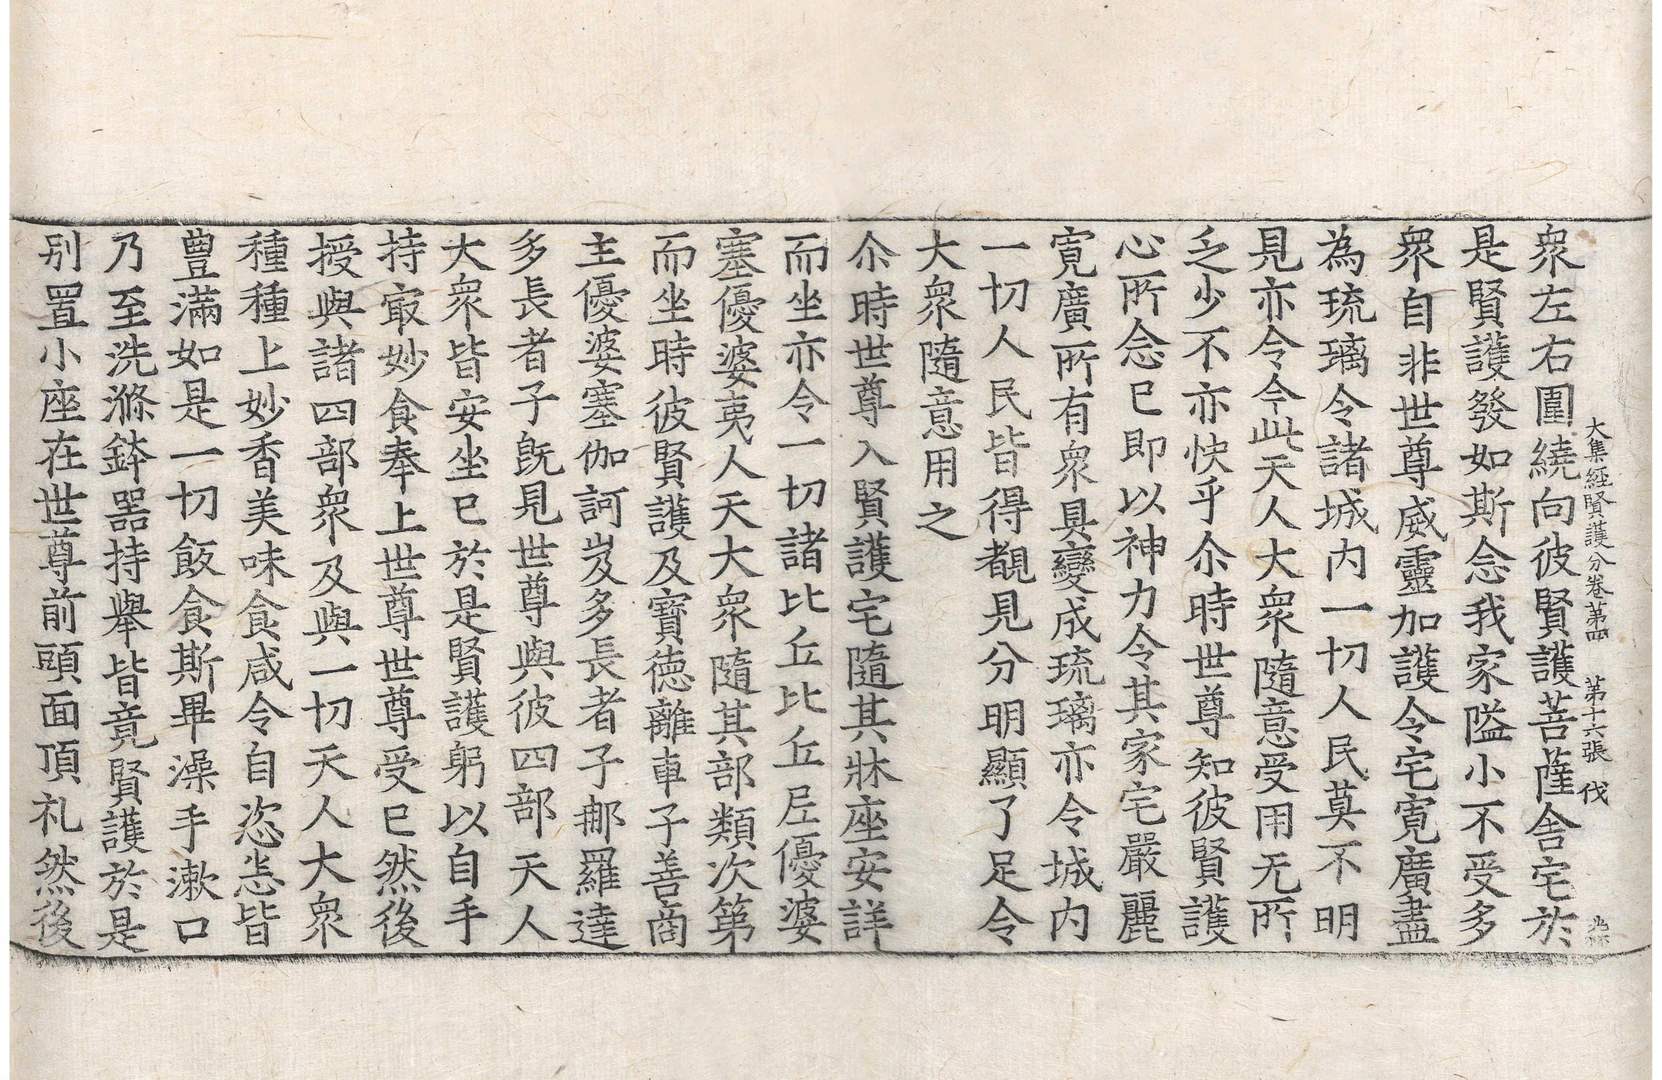 大集經賢護分卷第四　第十六張　伐
衆左右圍繞向彼賢護菩薩舍宅於
是賢護發如斯念我家隘小不受多
衆自非世尊威靈加護令宅寛廣盡
為琉璃令諸城内一切人民莫不明
見亦令令此天人大衆隨意受用无所
乏少不亦快乎尒時世尊知彼賢護
心所念已即以神力令其家宅嚴麗
寛廣所有衆具變成琉璃亦令城内
一切人民皆得覩見分明顯了足令
大衆隨意用之
尒時世尊入賢護宅隨其牀座安詳
而坐亦令一切諸比丘比丘尼優婆
塞優婆夷人天大衆隨其部類次第
而坐時彼賢護及寶德離車子善商
主優婆塞伽訶岌多長者子那羅達
多長者子旣見世尊與彼四部天人
大衆皆安坐已於是賢護躬以自手
持㝡妙食奉上世尊世尊受已然後
授與諸四部衆及與一切天人大衆
種種上妙香美味食咸令自恣悉皆
豊滿如是一切飯食斯畢澡手漱口
乃至洗滌鉢器持舉皆竟賢護於是
别置小座在世尊前頭面頂礼然後